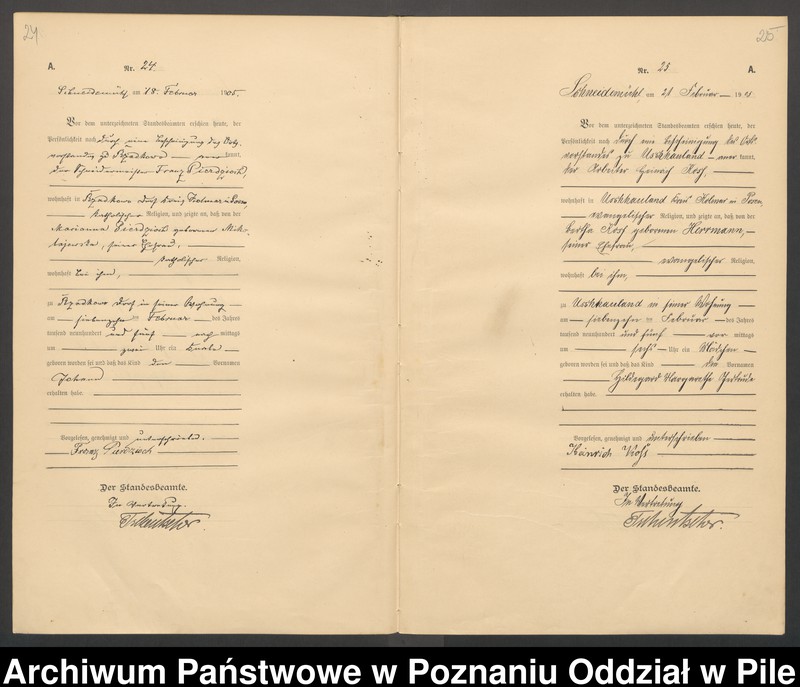 24
A.
Nr. 24.
Schneidemühl, am 18. Februar 1905.
Vor dem unterzeichneten Standesbeamten erschien heute, der
Persönlichkeit nach durch eine Bescheinigung des Orts-
vorstandes zu — kannt,
der Schneidermeister Franz Pierdzioch,
wohnhaft in Dorf Kreis Kolmar in Posen,
katholischer Religion, und zeigte an, daß von der
Marianna Pierdzioch geborenen Mik-
lajewska, seiner Ehefrau,
katholischer Religion,
wohnhaft bei ihm,
zu Dorf in seiner Wohnung
am siebenzehn ten Februar des Jahres
tausend neunhundert und fünf nach mittags
um zwei Uhr ein Knabe
geboren worden sei und daß das Kind den Vornamen
Johann
erhalten habe.
Vorgelesen, genehmigt und unterschrieben.
Franz Pierdzioch
Der Standesbeamte.
In Vertretung.
25
Nr. 25
A.
Schneidemühl, am 21 Februar 19
Vor dem unterzeichneten Standesbeamten erschien heute, der
Persönlichkeit nach durch eine Bescheinigung des Orts-
vorstandes zu Uschhauland — aner kannt,
der Arbeiter Heinrich
wohnhaft in Uschhauland Kreis Kolmar in Posen,
evangelischer Religion, und zeigte an, daß von der
Bertha geborenen Herrmann,
seiner Ehefrau,
evangelischer Religion,
wohnhaft bei ihm,
zu Uschhauland in seiner Wohnung
am siebenzehn ten Februar des Jahres
tausend neunhundert und fünf vor mittags
um sechs Uhr ein Mädchen
geboren worden sei und daß das Kind die Vornamen
Hildegard Margarethe Gertrude
erhalten habe.
Vorgelesen, genehmigt und unterschrieben
Heinrich
Der Standesbeamte.
In Vertretung
Archiwum Państwowe w Poznaniu Oddział w Pile